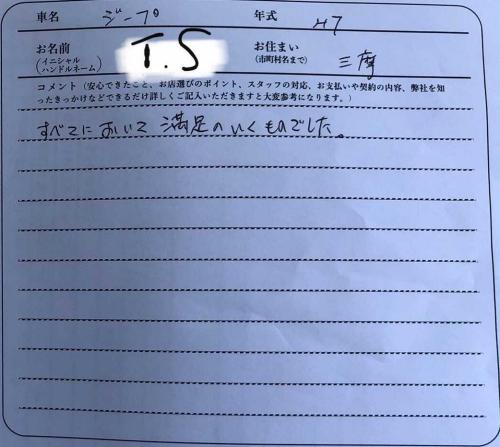 車名 ジープ 年式 H7
お名前 (イニシャル ハンドルネーム) T.S お住まい (市町村名まで) 三
コメント（安心できたこと、お店選びのポイント、スタッフの対応、お支払いや契約の内容、弊社を知
ったきっかけなどできるだけ詳しくご記入いただきますと大変参考になります。）
すべてにおいて満足のいくものでした。